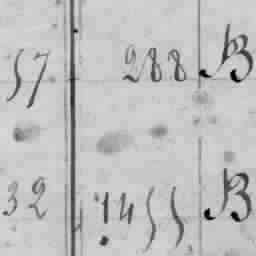 57 288 B
32 1455 B